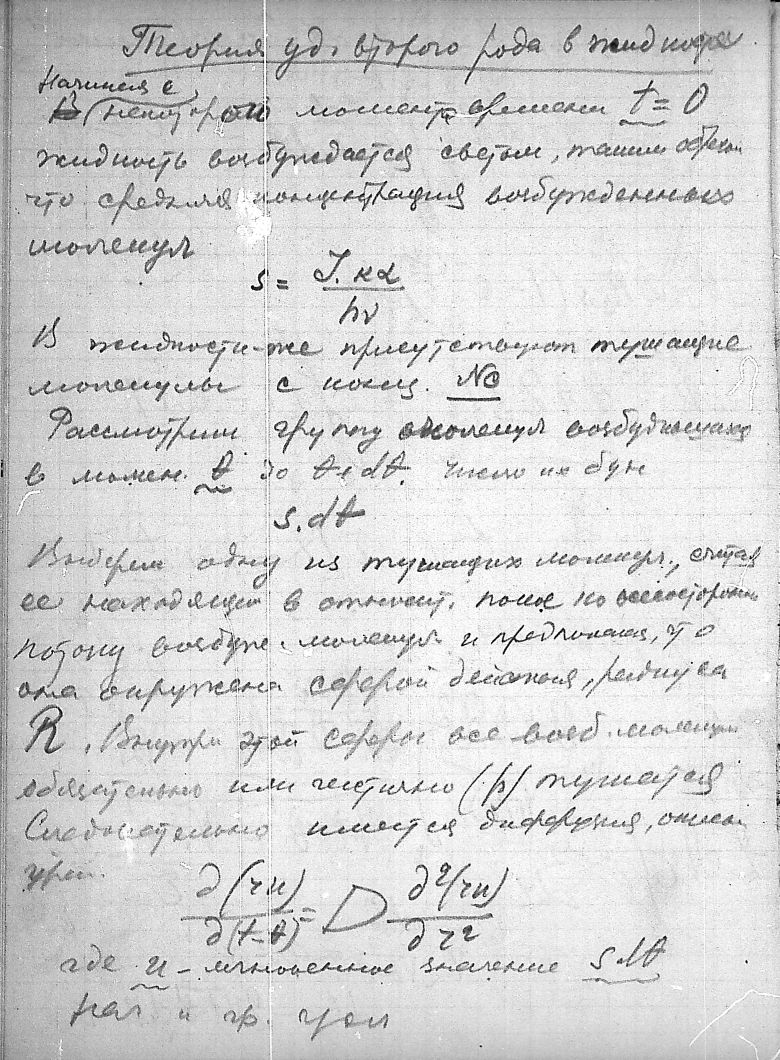 Теория уд. второго рода в жидкости
Начиная с
некоторого момента времени t = 0
жидкость возбуждается светом, таким образом
что средняя концентрация возбужденных
молекул
s = J.кα / hν
В жидкости-же присутствуют тушащие
молекулы с конц. Nc
Рассмотрим группу молекул возбудившихся
в момен. θ до θ+dθ. Число их буд
s.dθ
Выберем одну из тушащих молекул, считая
ее находящей в относит. покое по всесторонн
потоку возбужд. молекул и предполагая, что
она окружена сферой действия, радиуса
R. Внутри этой сферы все возб. молекулы
обязательно или частично (p) тушатся
Следовательно имеется диффузия, описыв
урав.
∂(ru) / ∂(t-θ) = D ∂²(ru) / ∂r²
где u - мгновенное значение s dθ
Нач и гр. усл